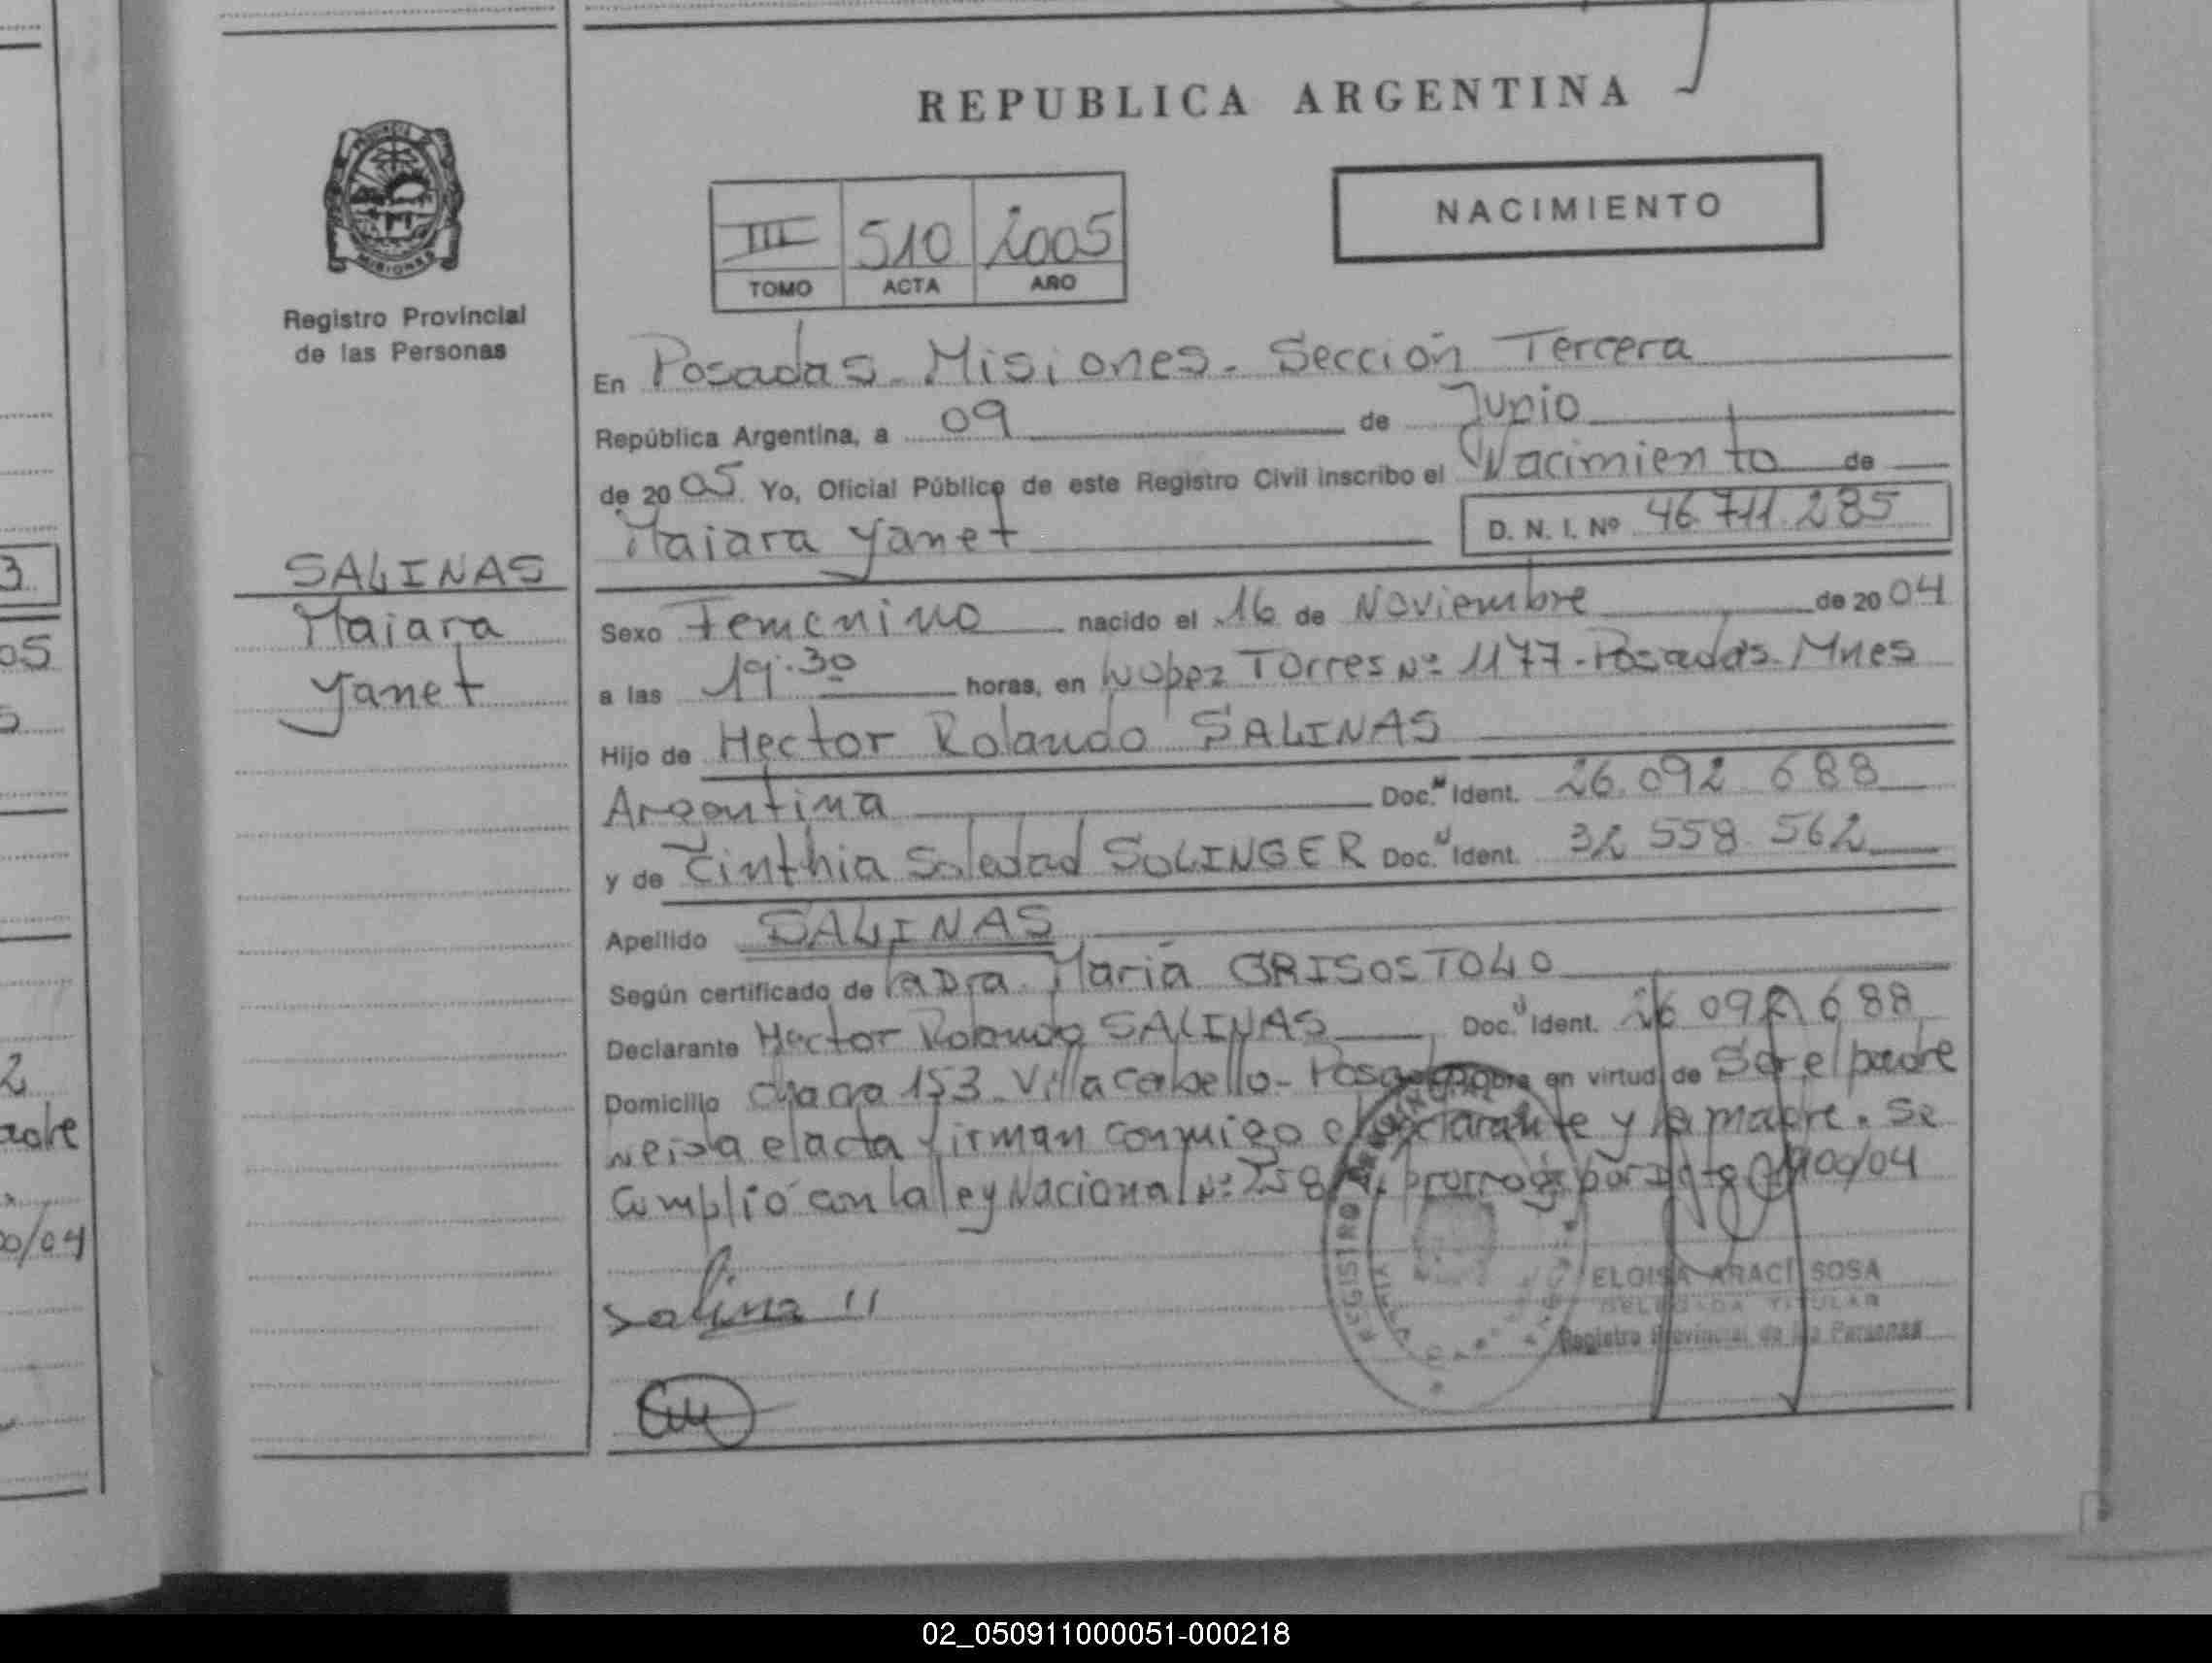 REPUBLICA ARGENTINA
PROVINCIA
MISIONES
Registro Provincial
de las Personas
III 510 2005
TOMO ACTA AÑO
NACIMIENTO
En Posadas - Misiones - Sección Tercera
República Argentina, a 09 de Junio
de 2005 Yo, Oficial Público de este Registro Civil inscribo el Nacimiento de
Maiara Yanet
D. N. I. Nº 46.711.285
SALINAS
Maiara
Yanet
Sexo Femenino nacido el 16 de Noviembre de 2004
a las 19:30 horas, en López Torres Nº 1177 - Posadas - Mnes
Hijo de Hector Rolando SALINAS
Argentina Doc. Ident. 26.092 688
y de Cinthia Soledad SOLINGER Doc. Ident. 32 558 562
Apellido SALINAS
Según certificado de la Dra. María GRISOSTOLO
Declarante Hector Rolando SALINAS Doc. Ident. 26 092 688
Domicilio Chacra 153 - Villa Cabello - Posadas Obra en virtud de Ser el padre
Leida el acta firman conmigo el declarante y la madre. Se
Cumplió con la ley Nacional Nº prorrog. por Dto 1900/04
Salina
ELOISA ARACI SOSA
DELEGADA TITULAR
Registro Provincial de las Personas
REGISTRO
3
05
5
2
adre
00/04
02_050911000051-000218